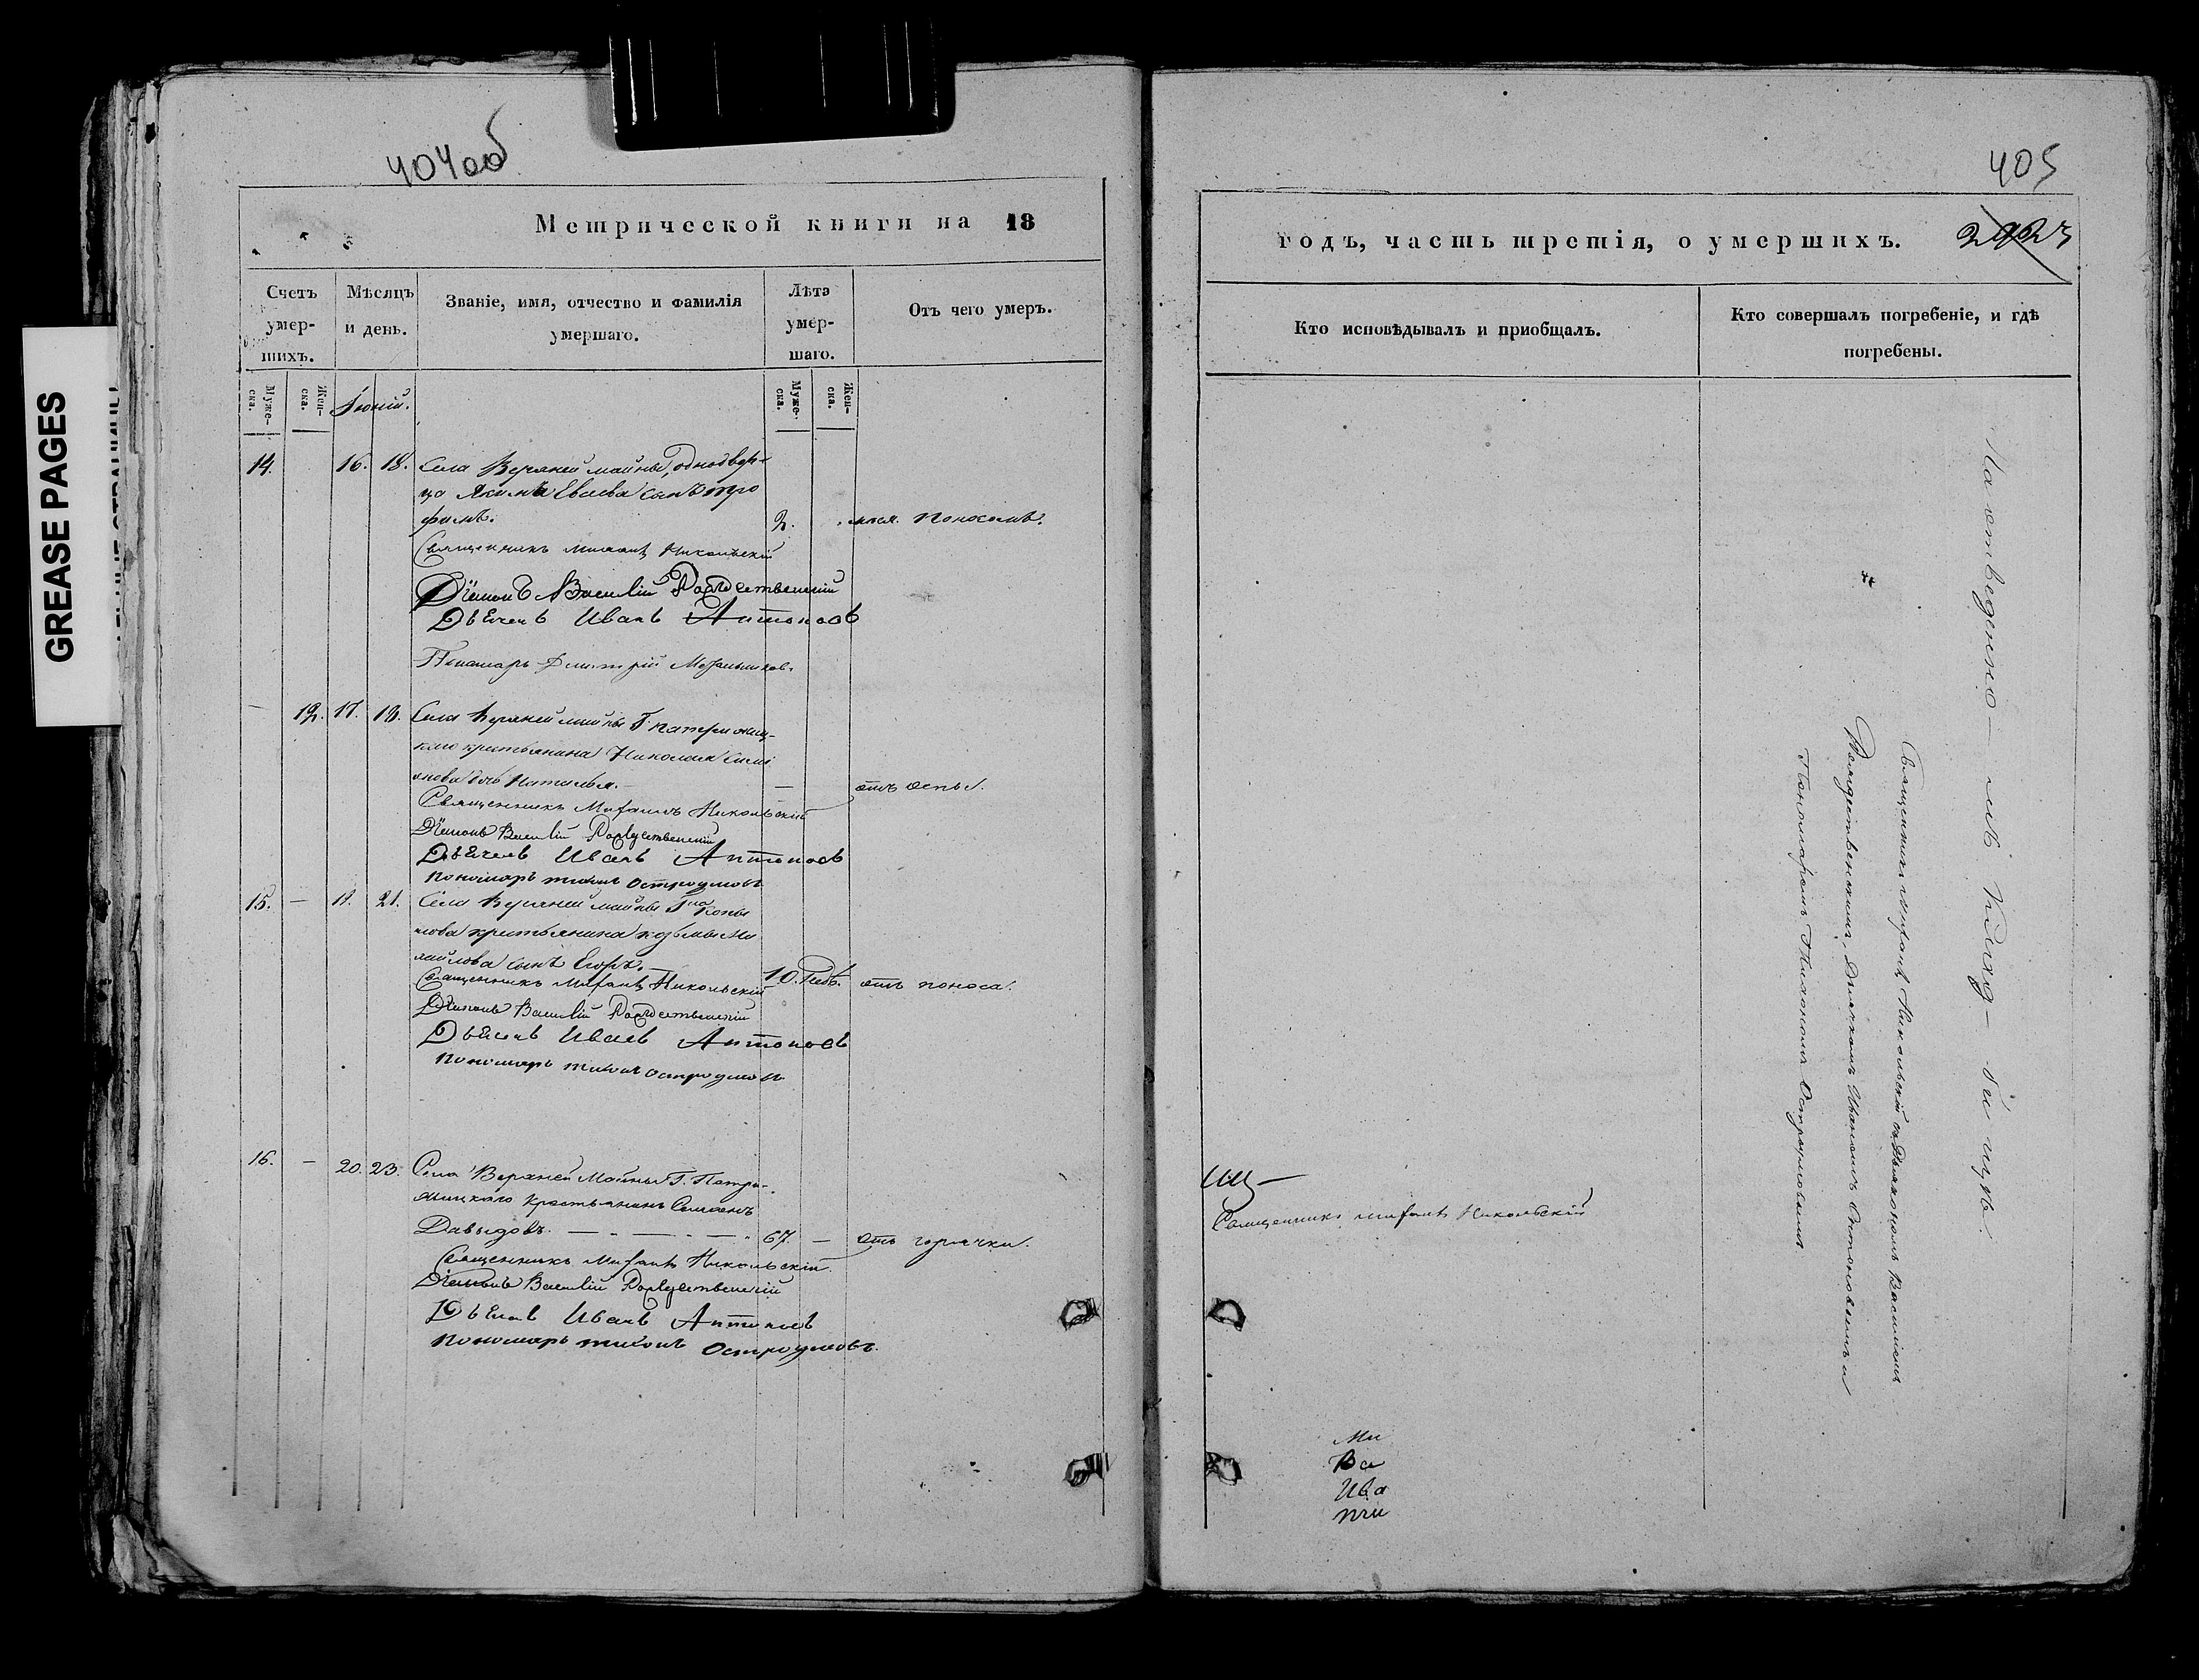 404об
Метрической книги на 18
Счетъ умер- шихъ.
Мѣсяцъ и день.
Званіе, имя, отчество и фамилія умершаго.
Лѣта умер- шаго.
Отъ чего умеръ.
Муже- ска.
Жен- ска.
Іюній.
Муже- ска.
Жен- ска.
14. 16. 18. Села Верхней майны, однодвор-
ца Якима Еваева сынъ тро
фимъ. 2. поносомъ.
Священникъ Михаилъ Никольскій
Діаконъ Василій Рождественскій
Дьячекъ Иванъ Антоновъ
Пономарь Дмитрій
12. 17. 18. Села верхней майны Г.
кого крестьянина Николая Симі
онова дочь Наталья. — отъ оспы.
Священникъ Михаилъ Никольскій
Діаконъ Василій Рождественскій
Дьячекъ Иванъ Антоновъ
пономарь тихонъ остроумовъ
15. — 21. Села Верхней майны Гна
нова крестьянина козьмы Ми
хайлова сынъ Егоръ. —
Священникъ Михаилъ Никольскій 10. отъ поноса.
Діаконъ Василій Рождественскій
Дьячекъ Иванъ Антоновъ
пономарь тихонъ остроумовъ
16. — 20. 23. Села Верхней Майны Г. Патри-
жицкаго крестьянинъ Семенъ
Давыдовъ. — 67. — отъ горячки.
Священникъ Михаилъ Никольскій
Діаконъ Василій Рождественскій
Дьячекъ Иванъ Антоновъ
пономарь тихонъ Остроумовъ.
405
годъ, часть третія, о умершихъ.
Кто исповѣдывалъ и пріобщалъ.
Кто совершалъ погребеніе, и гдѣ погребены.
Священникъ Михаилъ Никольскій
На отведенномъ кладбищѣ.
Священникъ Михаилъ Никольскій съ Діакономъ Василіемъ
Рождественскимъ, Дьячкомъ Иваномъ Антоновымъ и
Пономаремъ Тихономъ Остроумовымъ
Ми
Ва
Ива